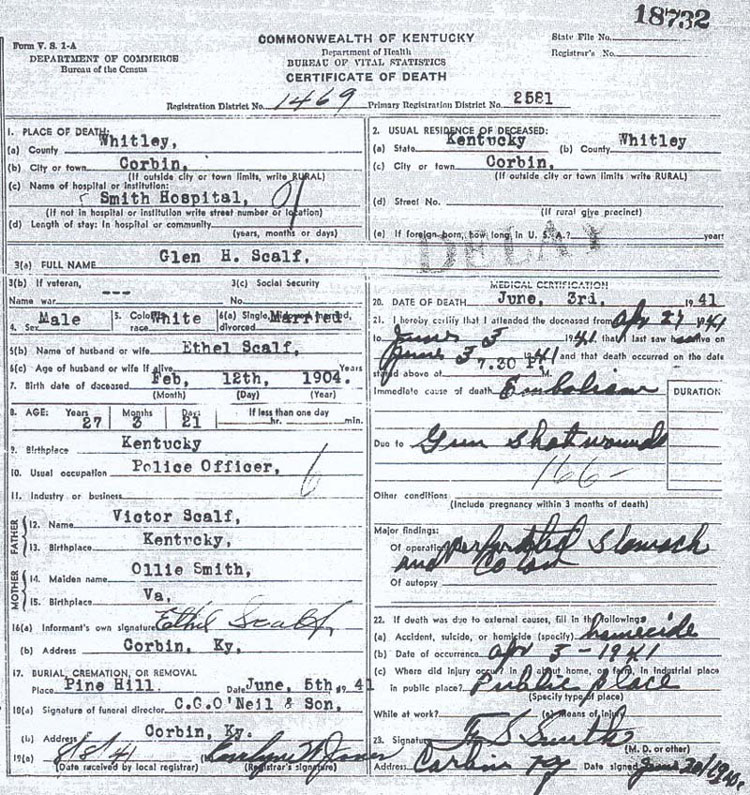 18732
Form V. S. 1-A
DEPARTMENT OF COMMERCE
Bureau of the Census
COMMONWEALTH OF KENTUCKY
Department of Health
BUREAU OF VITAL STATISTICS
CERTIFICATE OF DEATH
State File No.
Registrar's No.
Registration District No. 1469 Primary Registration District No. 2581
1. PLACE OF DEATH:
(a) County Whitley,
(b) City or town Corbin,
(If outside city or town limits, write RURAL)
(c) Name of hospital or institution:
Smith Hospital,
(If not in hospital or institution write street number or location)
(d) Length of stay: In hospital or community
(years, months or days)
2. USUAL RESIDENCE OF DECEASED:
(a) State Kentucky (b) County Whitley
(c) City or town Corbin,
(If outside city or town limits, write RURAL)
(d) Street No.
(If rural give precinct)
(e) If foreign-born, how long in U. S. A.? years
DELAY
3(a) FULL NAME Glen H. Scalf,
3(b) If veteran,
Name war ---
3(c) Social Security
No.
4. Sex Male 5. Color or race White 6(a) Single, widowed, married, divorced Married
6(b) Name of husband or wife Ethel Scalf,
6(c) Age of husband or wife if alive Years
7. Birth date of deceased Feb, 12th, 1904.
(Month) (Day) (Year)
8. AGE: Years Months Days If less than one day
27 3 21 hr. min.
9. Birthplace Kentucky
10. Usual occupation Police Officer,
11. Industry or business
FATHER
12. Name Victor Scalf,
13. Birthplace Kentucky,
MOTHER
14. Maiden name Ollie Smith,
15. Birthplace Va,
16(a) Informant's own signature Ethel Scalf,
(b) Address Corbin, Ky,
17. BURIAL, CREMATION, OR REMOVAL
Place Pine Hill Date June, 5th, 1941
18(a) Signature of funeral director C.G.O'Neil & Son,
(b) Address Corbin, Ky.
19(a) 8/8/41
(Date received by local registrar) (Registrar's signature)
MEDICAL CERTIFICATION
20. DATE OF DEATH June, 3rd, 1941
21. I hereby certify that I attended the deceased from Apr 27 1941
to June 3 1941 that I last saw him alive on
June 3 1941 and that death occurred on the date
stated above at 7.30 P. M.
Immediate cause of death Embolism
DURATION
Due to Gun shot wounds
166-
Other conditions
(Include pregnancy within 3 months of death)
Major findings:
Of operation perforated stomach
and Colon
Of autopsy
22. If death was due to external causes, fill in the following:
(a) Accident, suicide, or homicide (specify) homecide
(b) Date of occurrence Apr 3-1941
(c) Where did injury occur? In or about home, on farm, in industrial place
in public place? Public place
(Specify type of place)
While at work? (e) Means of injury
23. Signature Smith
(M. D. or other)
Address Corbin Ky Date signed